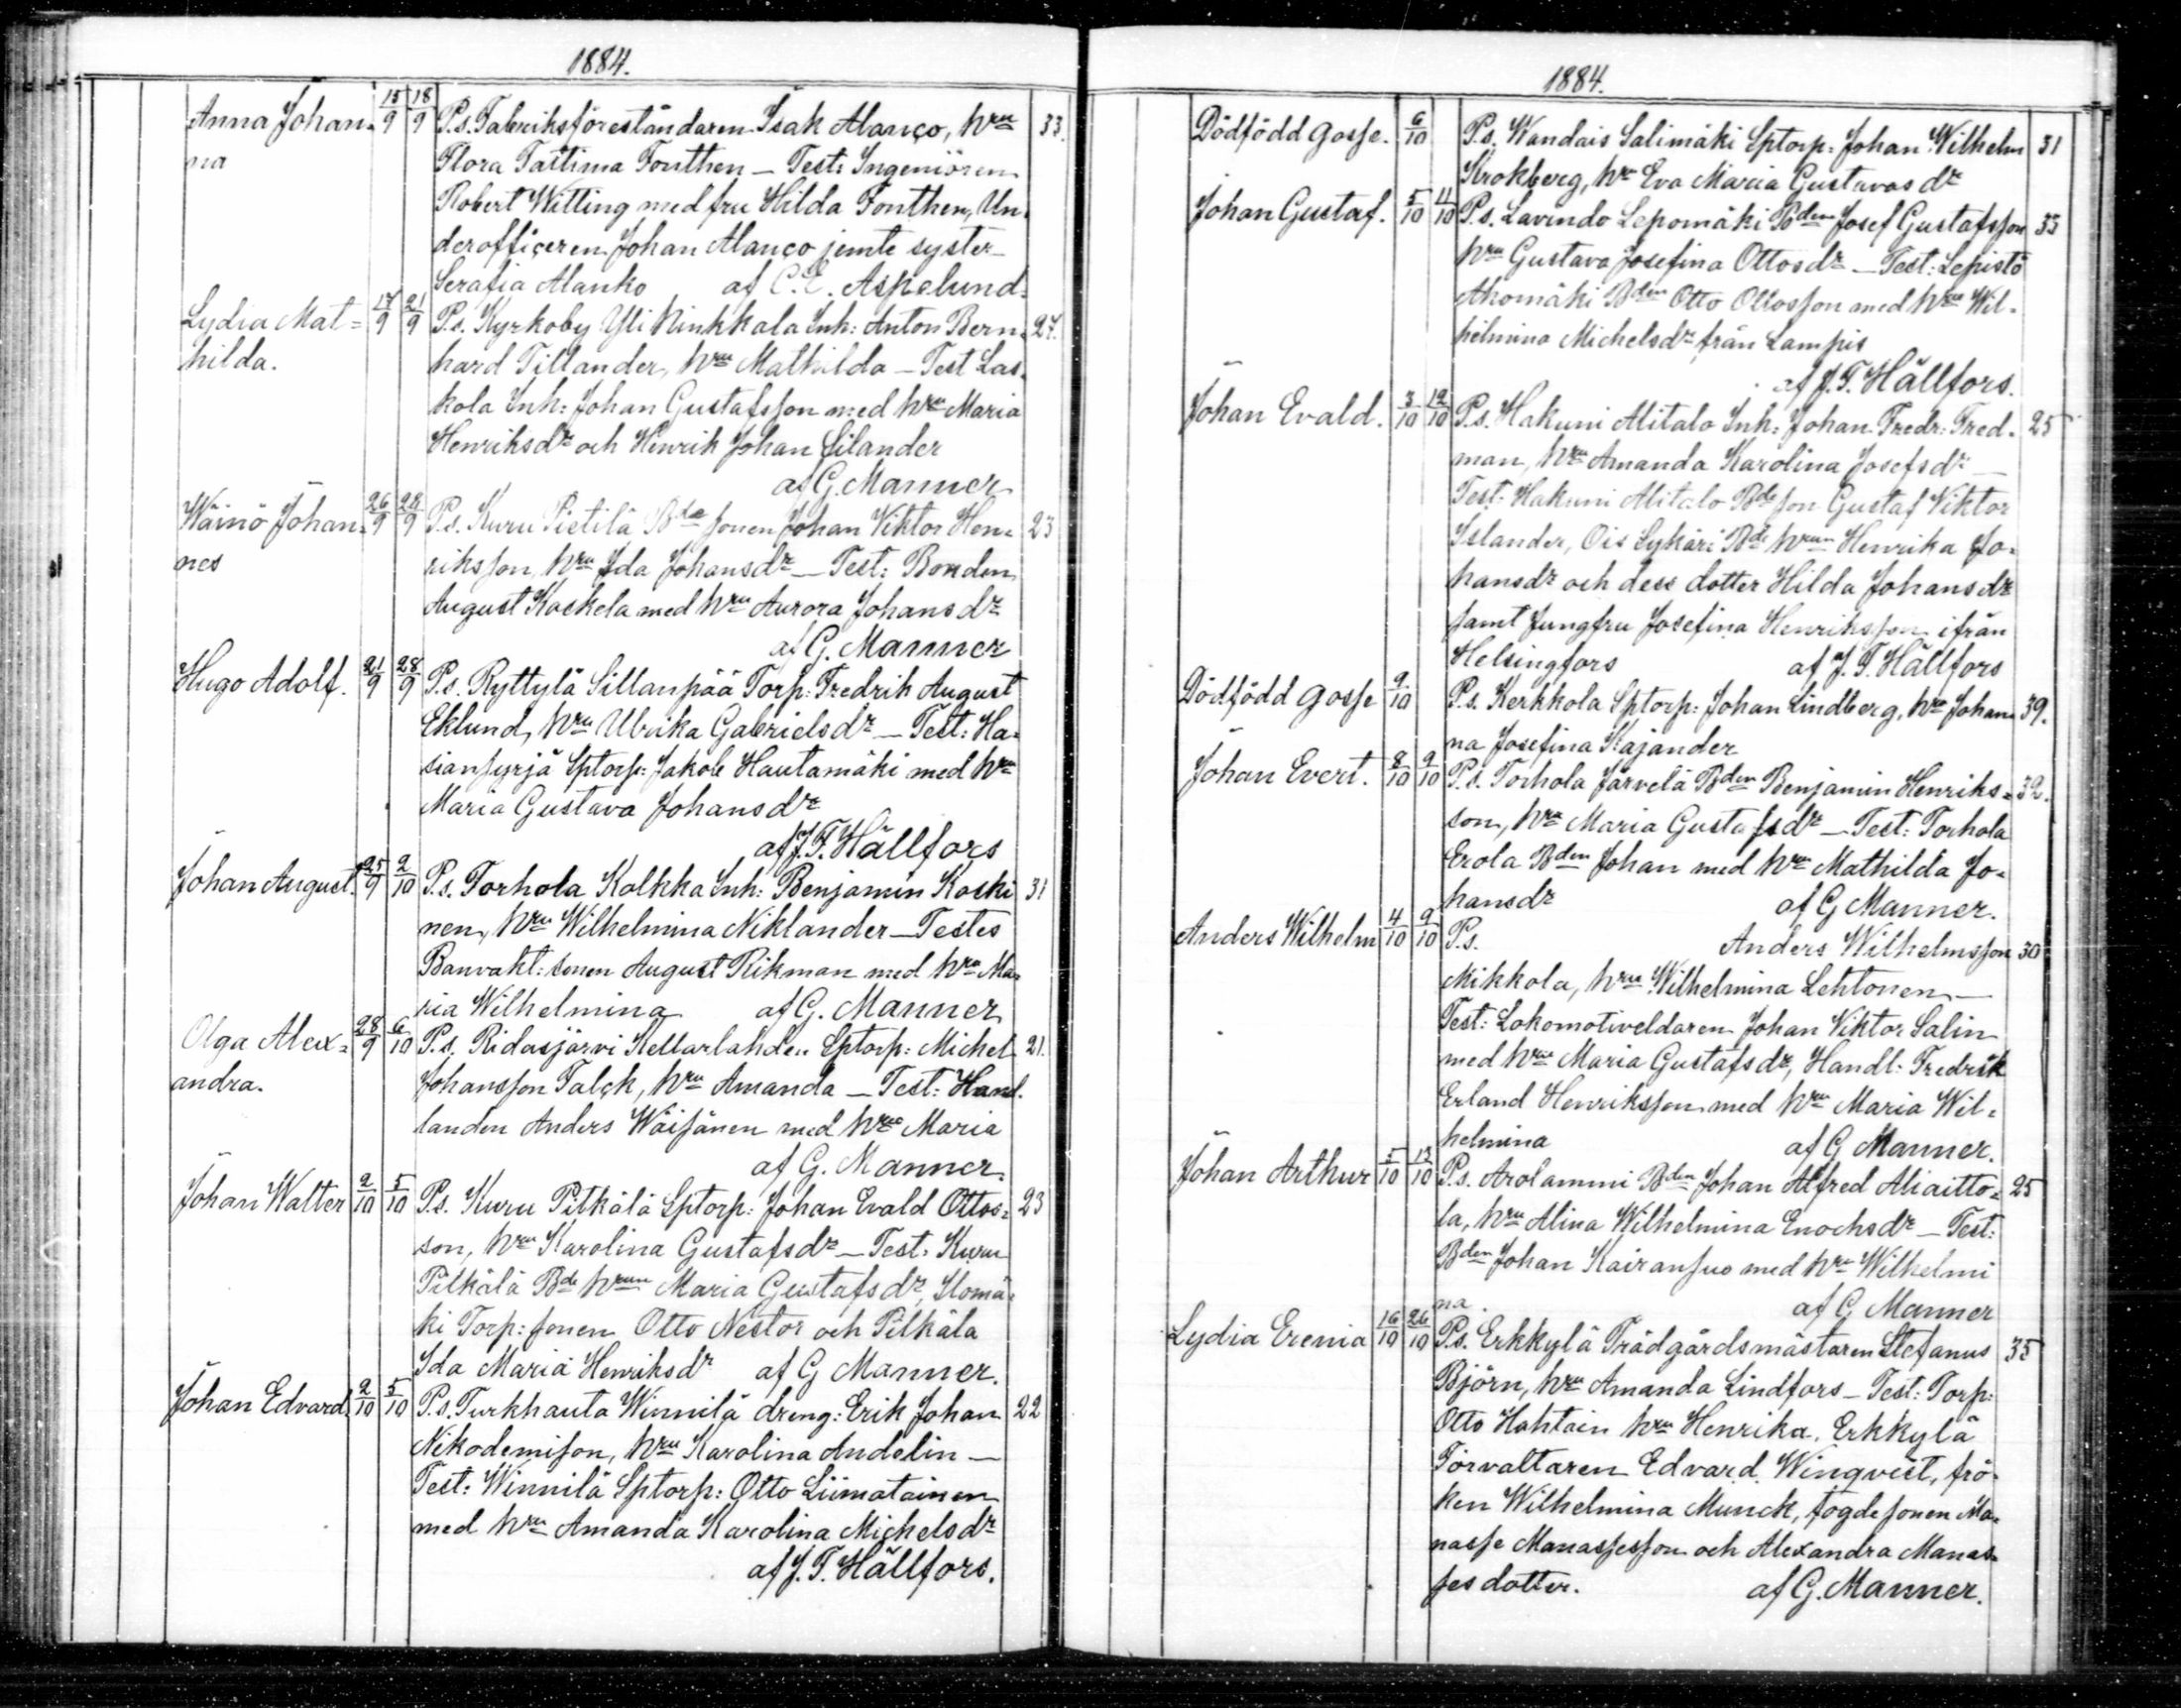 1884.
Anna Johan= 15/9 18/9 P.s. Fabriksföreståndaren Isak Alanço, hru 33.
na Flora Fattima Fonthen — Test: Ingeniören
Robert Witting med fru Hilda Fonthen, Un=
derofficeren Johan Alanço jemte syster
Serafia Alanko af C.E. Aspelund.
Lydia Mat= 17/9 21/9 P.s. Kyrkoby Yli Ninkkala Inh: Anton Bern= 27.
hilda. hard Tillander, hru Mathilda — Test Las=
kola Inh: Johan Gustafsson med hru Maria
Henriksdr och Henrik Johan Silander
af G. Manner
Wäinö Johan= 26/9 28/9 P.s. Kuru Pietilä Bde sonen Johan Viktor Hen= 23
nes riksson, hru Ida Johansdr — Test: Bonden
August Koskela med hru Aurora Johansdr
af G. Manner
Hugo Adolf. 21/9 28/9 P.s. Ryttylä Sillanpää Torp: Fredrik August
Eklund, hru Ulrika Gabrielsdr — Test: Ha=
sianpyrjä Sptorp: Jakob Hautamäki med hru
Maria Gustava Johansdr
af J.F. Hällfors
Johan August. 25/9 2/10 P.s. Torhola Kolkka Inh: Benjamin Koski 31
nen, hru Wilhelmina Niklander — Testes
Banvakt: sonen August Rikman med hru Ma=
ria Wilhelmina af G. Manner
Olga Alex= 28/9 6/10 P.s. Ridasjärvi Kellarlahden Sptorp: Michel 21.
andra. Johansson Falck, hru Amanda — Test: Hand.
landen Anders Wäisänen med hru Maria
af G. Manner.
Johan Walter 2/10 5/10 P.s. Kuru Pitkälä Sptorp: Johan Evald Ottos= 23
son, hru Karolina Gustafsdr — Test: Kuru
Pitkälä Bde hrun Maria Gustafsdr, Ilomä=
ki Torp: sonen Otto Nestor och Pitkälä
Ida Maria Henriksdr af G Manner.
Johan Edvard 2/10 5/10 P.s. Turkhauta Winnilä dreng: Erik Johan 22
Nikodemison, hru Karolina Andelin —
Test: Winnilä Sptorp: Otto Liimatainen
med hru Amanda Karolina Michelsdr
af J.F. Hällfors.
1884.
Dödfödd gosse. 6/10 P.s. Wandais Salimäki Sptorp: Johan Wilhelm 31
Krokberg, hru Eva Maria Gustavasdr
Johan Gustaf. 5/10 11/10 P.s. Lavindo Lepomäki Bden Josef Gustafsson 35
hru Gustava Josefina Ottosdr — Test: Lepistö
Ahomäki Bden Otto Ottosson med hru Wil=
helmina Michelsdr från Lampis
af J.F. Hällfors.
Johan Evald. 3/10 12/10 P.s. Hakuni Alitalo Inh: Johan Fredr: Fred. 25
man, hru Amanda Karolina Josefsdr —
Test: Hakuni Alitalo Bde son Gustaf Viktor
Islander, Ois Lykäri Bde hrun Henrika Jo=
hansdr och dess dotter Hilda Johansdr
samt Jungfru Josefina Henriksson ifrån
Helsingfors af J.F. Hällfors
Dödfödd gosse 9/10 P.s. Kerkkola Sptorp: Johan Lindberg, hru Johan= 39.
na Josefina Kajander
Johan Evert. 8/10 9/10 P.s. Torhola Järvelä Bden Benjamin Henriks= 32.
son, hru Maria Gustafsdr — Test: Torhola
Erola Bden Johan med hru Mathilda Jo=
hansdr af G Manner.
Anders Wilhelm 4/10 9/10 P.s. Anders Wilhelmsson 30
Mikkola, hru Wilhelmina Lehtonen —
Test: Lokomotiveldaren Johan Viktor Salin
med hru Maria Gustafsdr, Handl: Fredrik
Erland Henriksson med hru Maria Wil=
helmina af G Manner.
Johan Arthur 5/10 12/10 P.s. Arolammi Bden Johan Alfred Aliaitto= 25
la, hru Alina Wilhelmina Enochsdr — Test:
Bden Johan Kairansuo med hru Wilhelmi
na. af G Manner
Lydia Erenia 16/10 26/10 P.s. Erkkylä Trädgårdsmästaren Stefanus 35
Björn, hru Amanda Lindfors — Test: Torp:
Otto Hahtain hru Henrika, Erkkylä
Förvaltaren Edvard Winqvist, frö=
ken Wilhelmina Munck, fogdesonen Ma=
nasse Manassesson och Alexandra Manas=
ses dotter. af G. Manner.